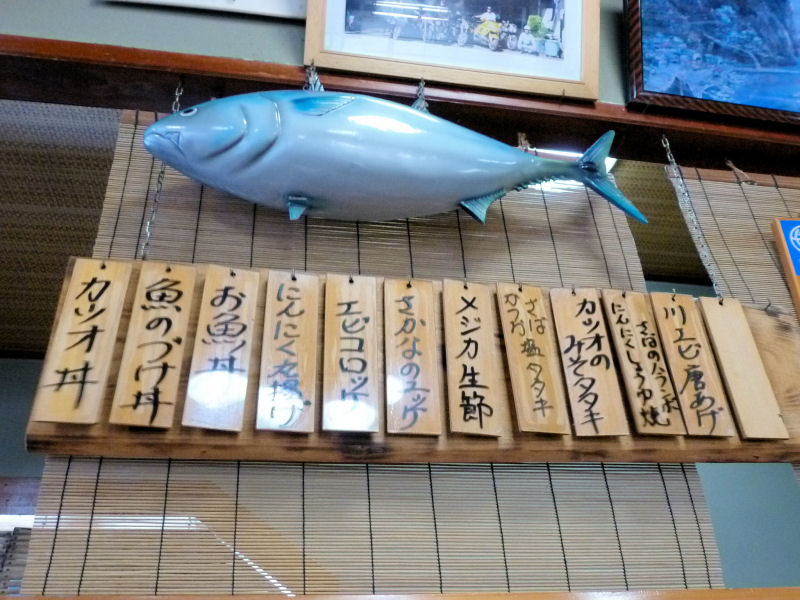 カツオ丼
魚のづけ丼
お魚丼
にんにく丸揚げ
エビコロッケ
さかなのエッグ
メジカ生節
さば
かつお
塩タタキ
カツオの
みそタタキ
さばの
にんにくしょうゆ焼
川エビ唐あげ